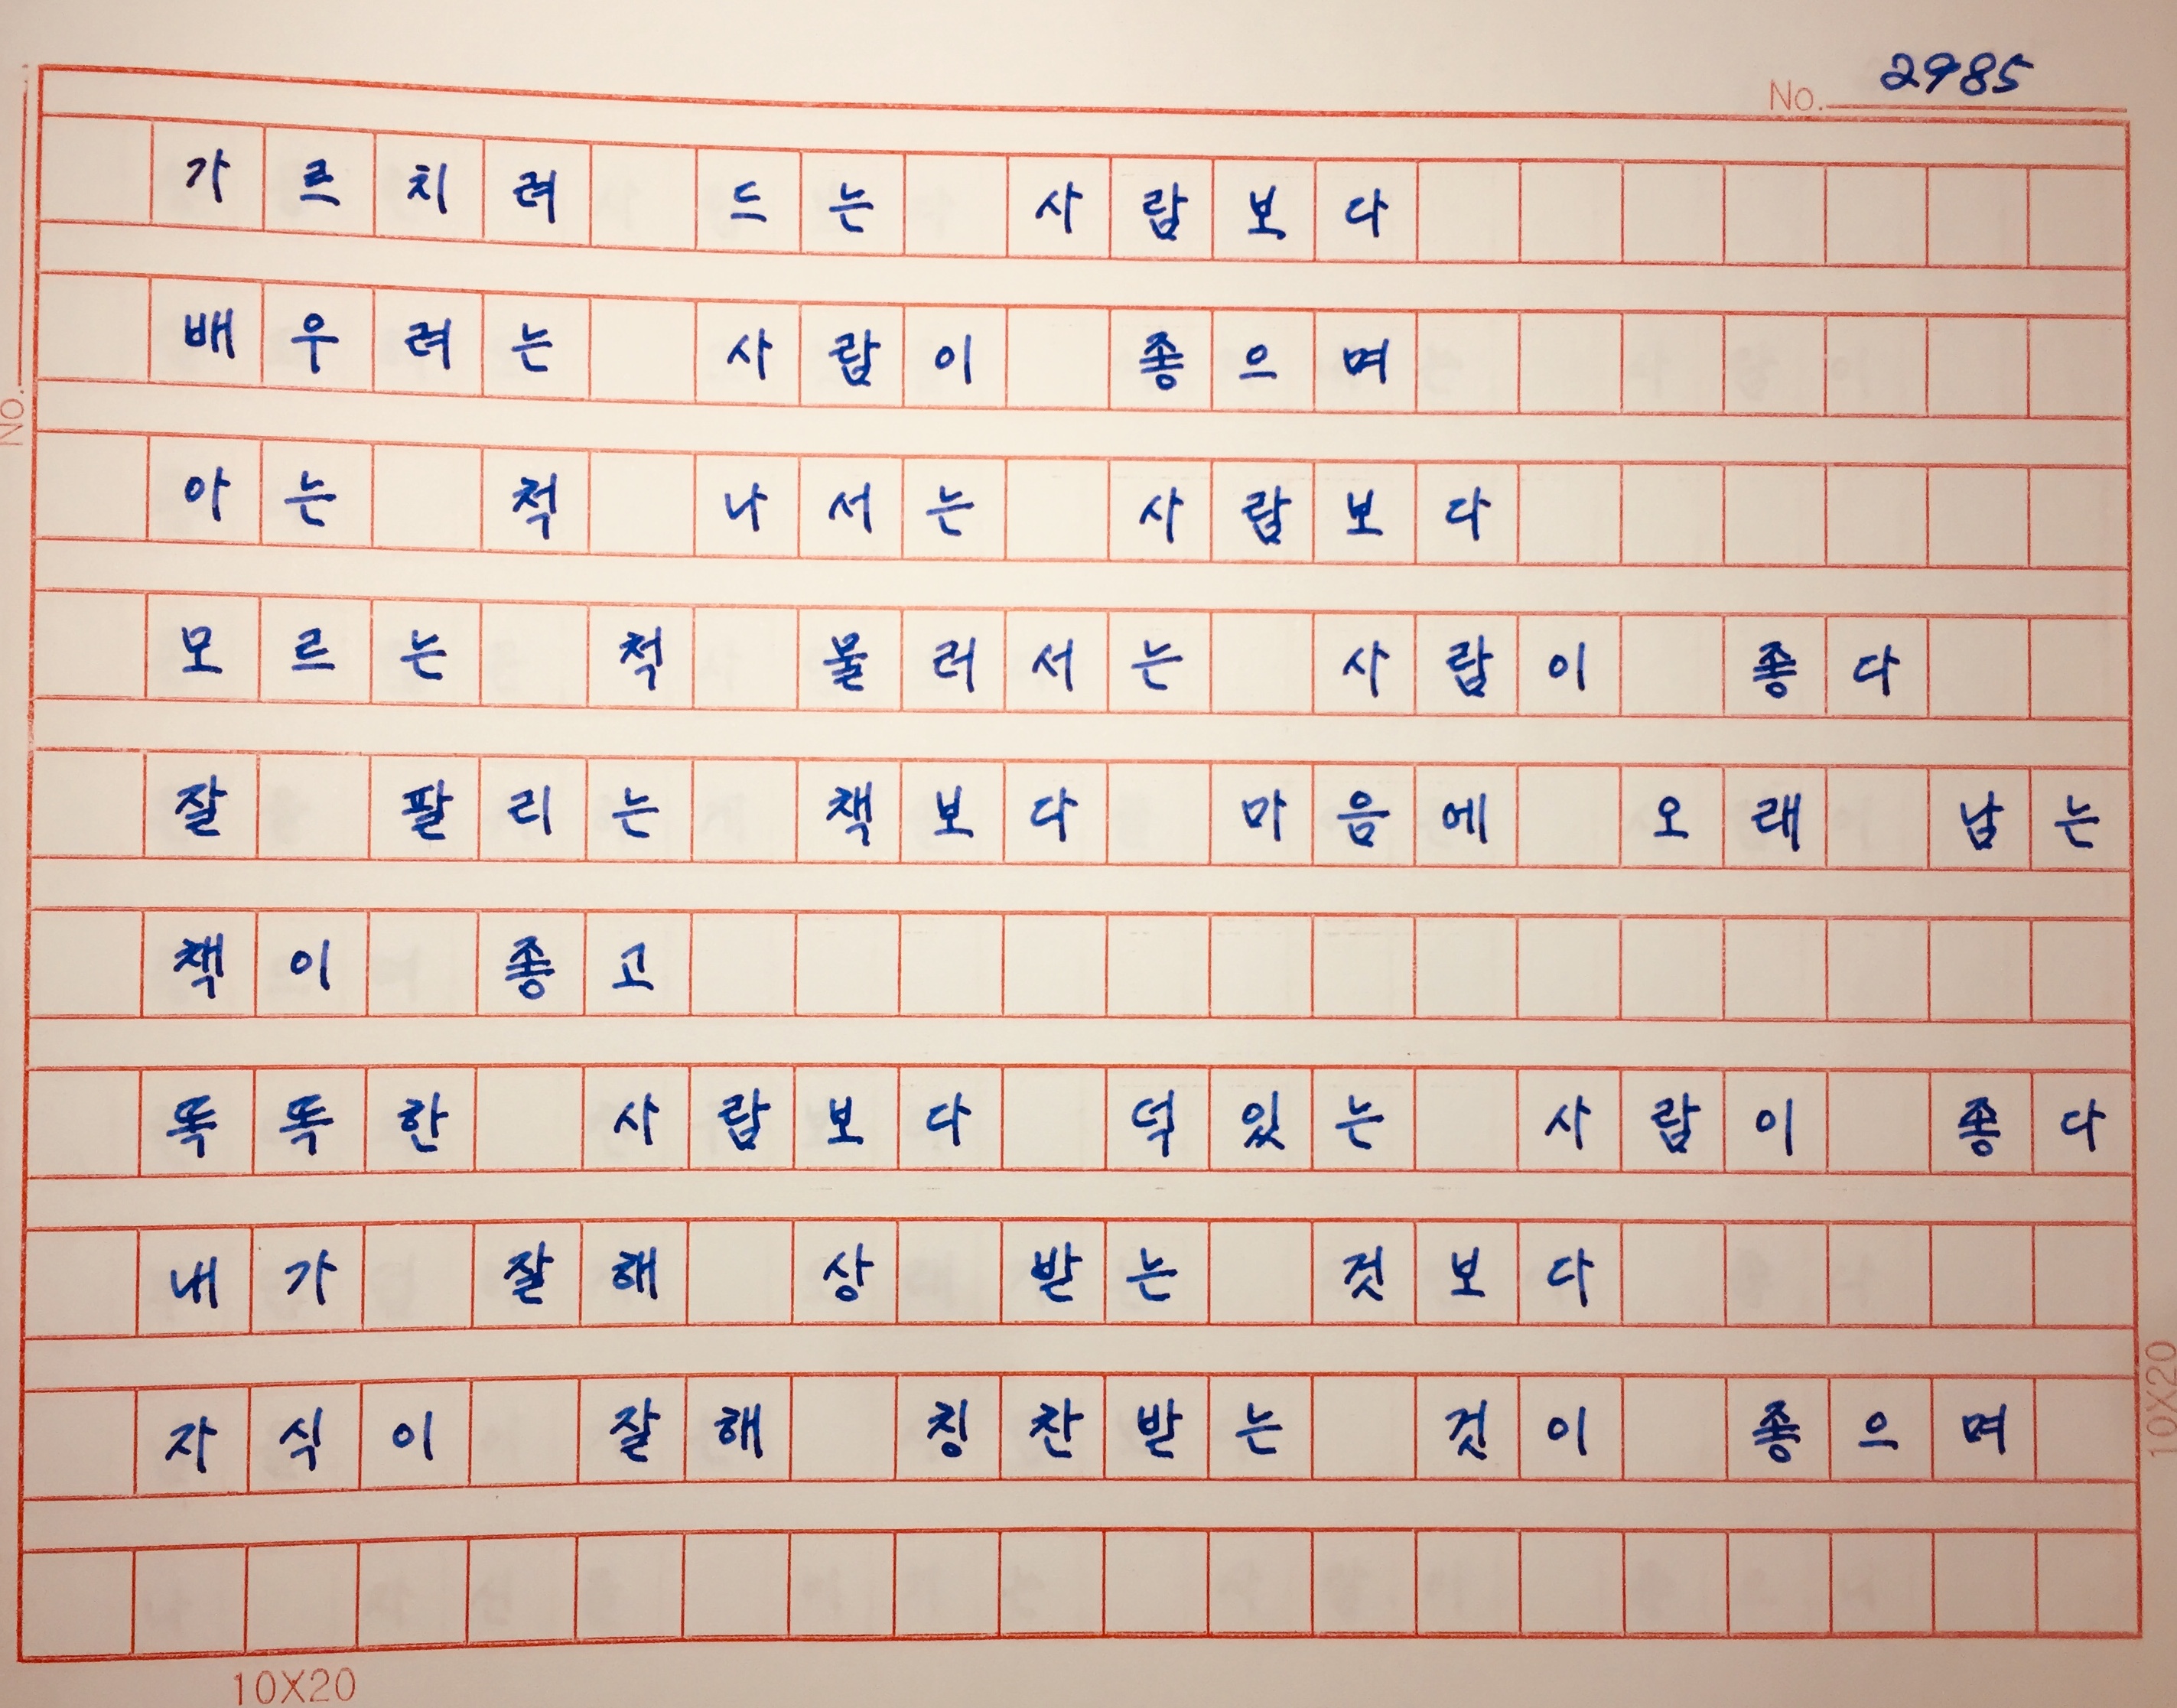 No. 2985
가르치려 드는 사람보다
배우려는 사람이 좋으며
아는 척 나서는 사람보다
모르는 척 물러서는 사람이 좋다
잘 팔리는 책보다 마음에 오래 남는
책이 좋고
똑똑한 사람보다 덕있는 사람이 좋다
내가 잘해 상 받는 것보다
자식이 잘해 칭찬받는 것이 좋으며
10X20
No.
10X20